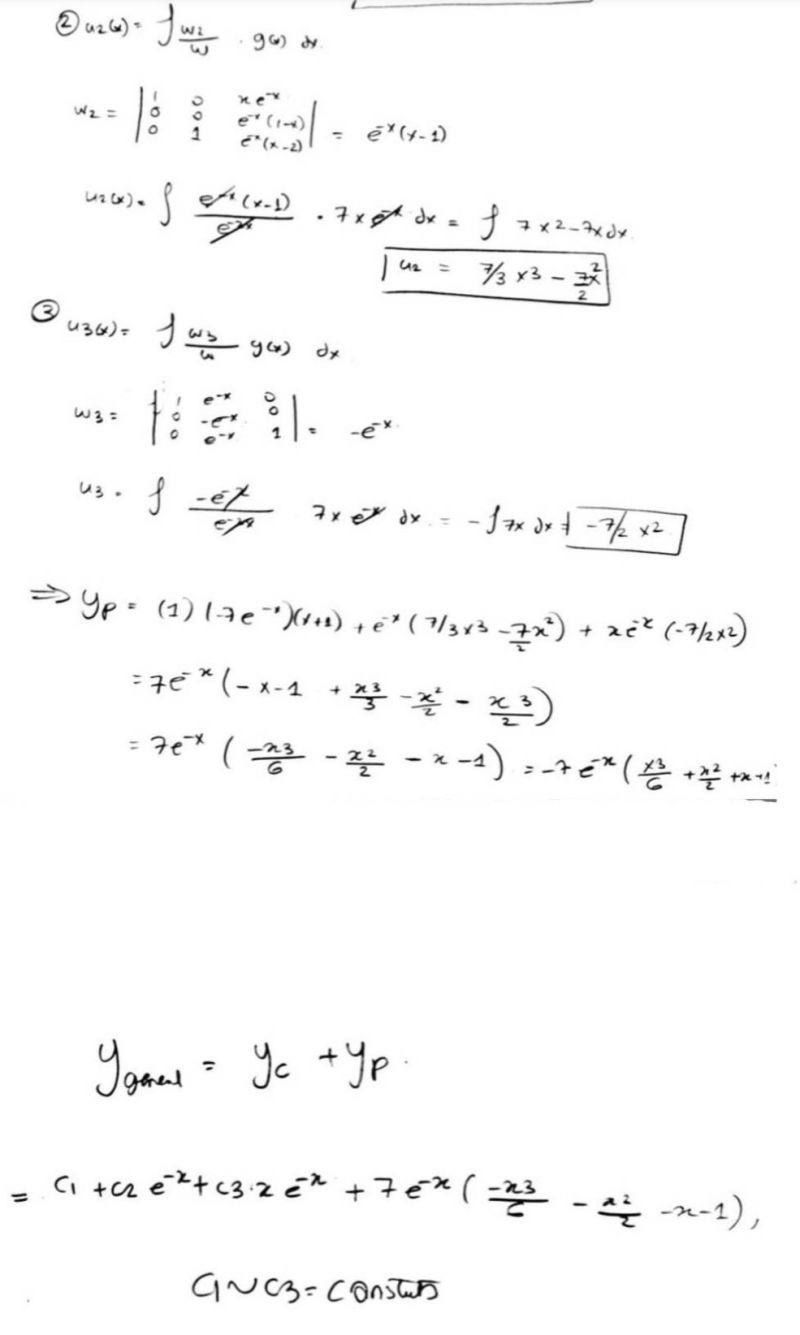 ② u2(x) = ∫ w2/w · g(x) dx.
w2 = | 1 0 xe^-x
0 0 e^-x(1-x)
0 1 e^-x(x-2) | = e^-x(x-1)
u2(x) = ∫ e^-x(x-1)/e^-2x · 7xe^-x dx = ∫ 7x2-7x dx.
u2 = 7/3 x3 - 7x^2/2
③ u3(x) = ∫ w3/w g(x) dx
w3 = | 1 e^-x 0
0 -e^-x 0
0 e^-x 1 | = -e^-x.
u3 = ∫ -e^-x/e^-2x 7xe^-x dx = -∫7x dx = -7/2 x2
⇒ yp = (1)(-7e^-x)(x+1) + e^-x(7/3x3 - 7x^2/2) + xe^-x(-7/2x2)
= 7e^-x(-x-1 + x3/3 - x^2/2 - x3/2)
= 7e^-x(-x3/6 - x2/2 - x - 1) = -7e^-x(x3/6 + x2/2 + x+1
y general = yc + yp.
= c1 + c2 e^-x + c3·x e^-x + 7e^-x(-x3/6 - x2/2 - x - 1),
C1~C3 = constants